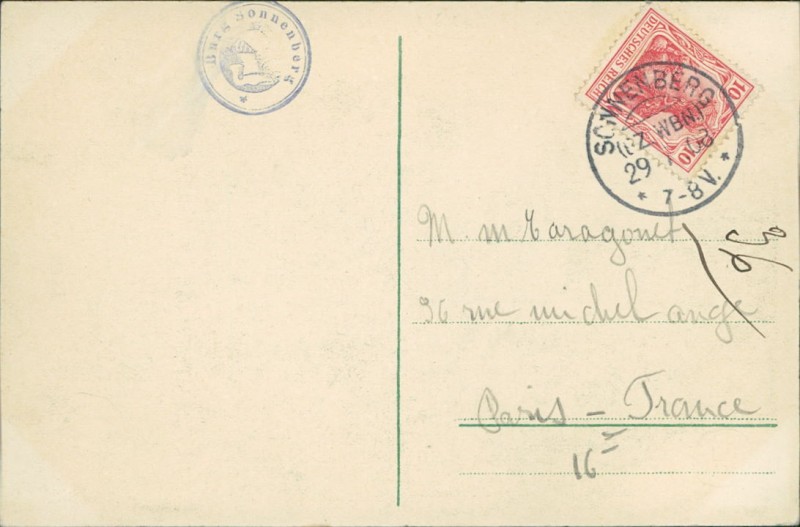 Burg Sonnenberg
DEUTSCHES REICH
10 10
SONNENBERG
(BZ. WBN.)
29
08
* 7-8 V. *
M. m Taragonet
96 rue michel ange
Paris - France
16e